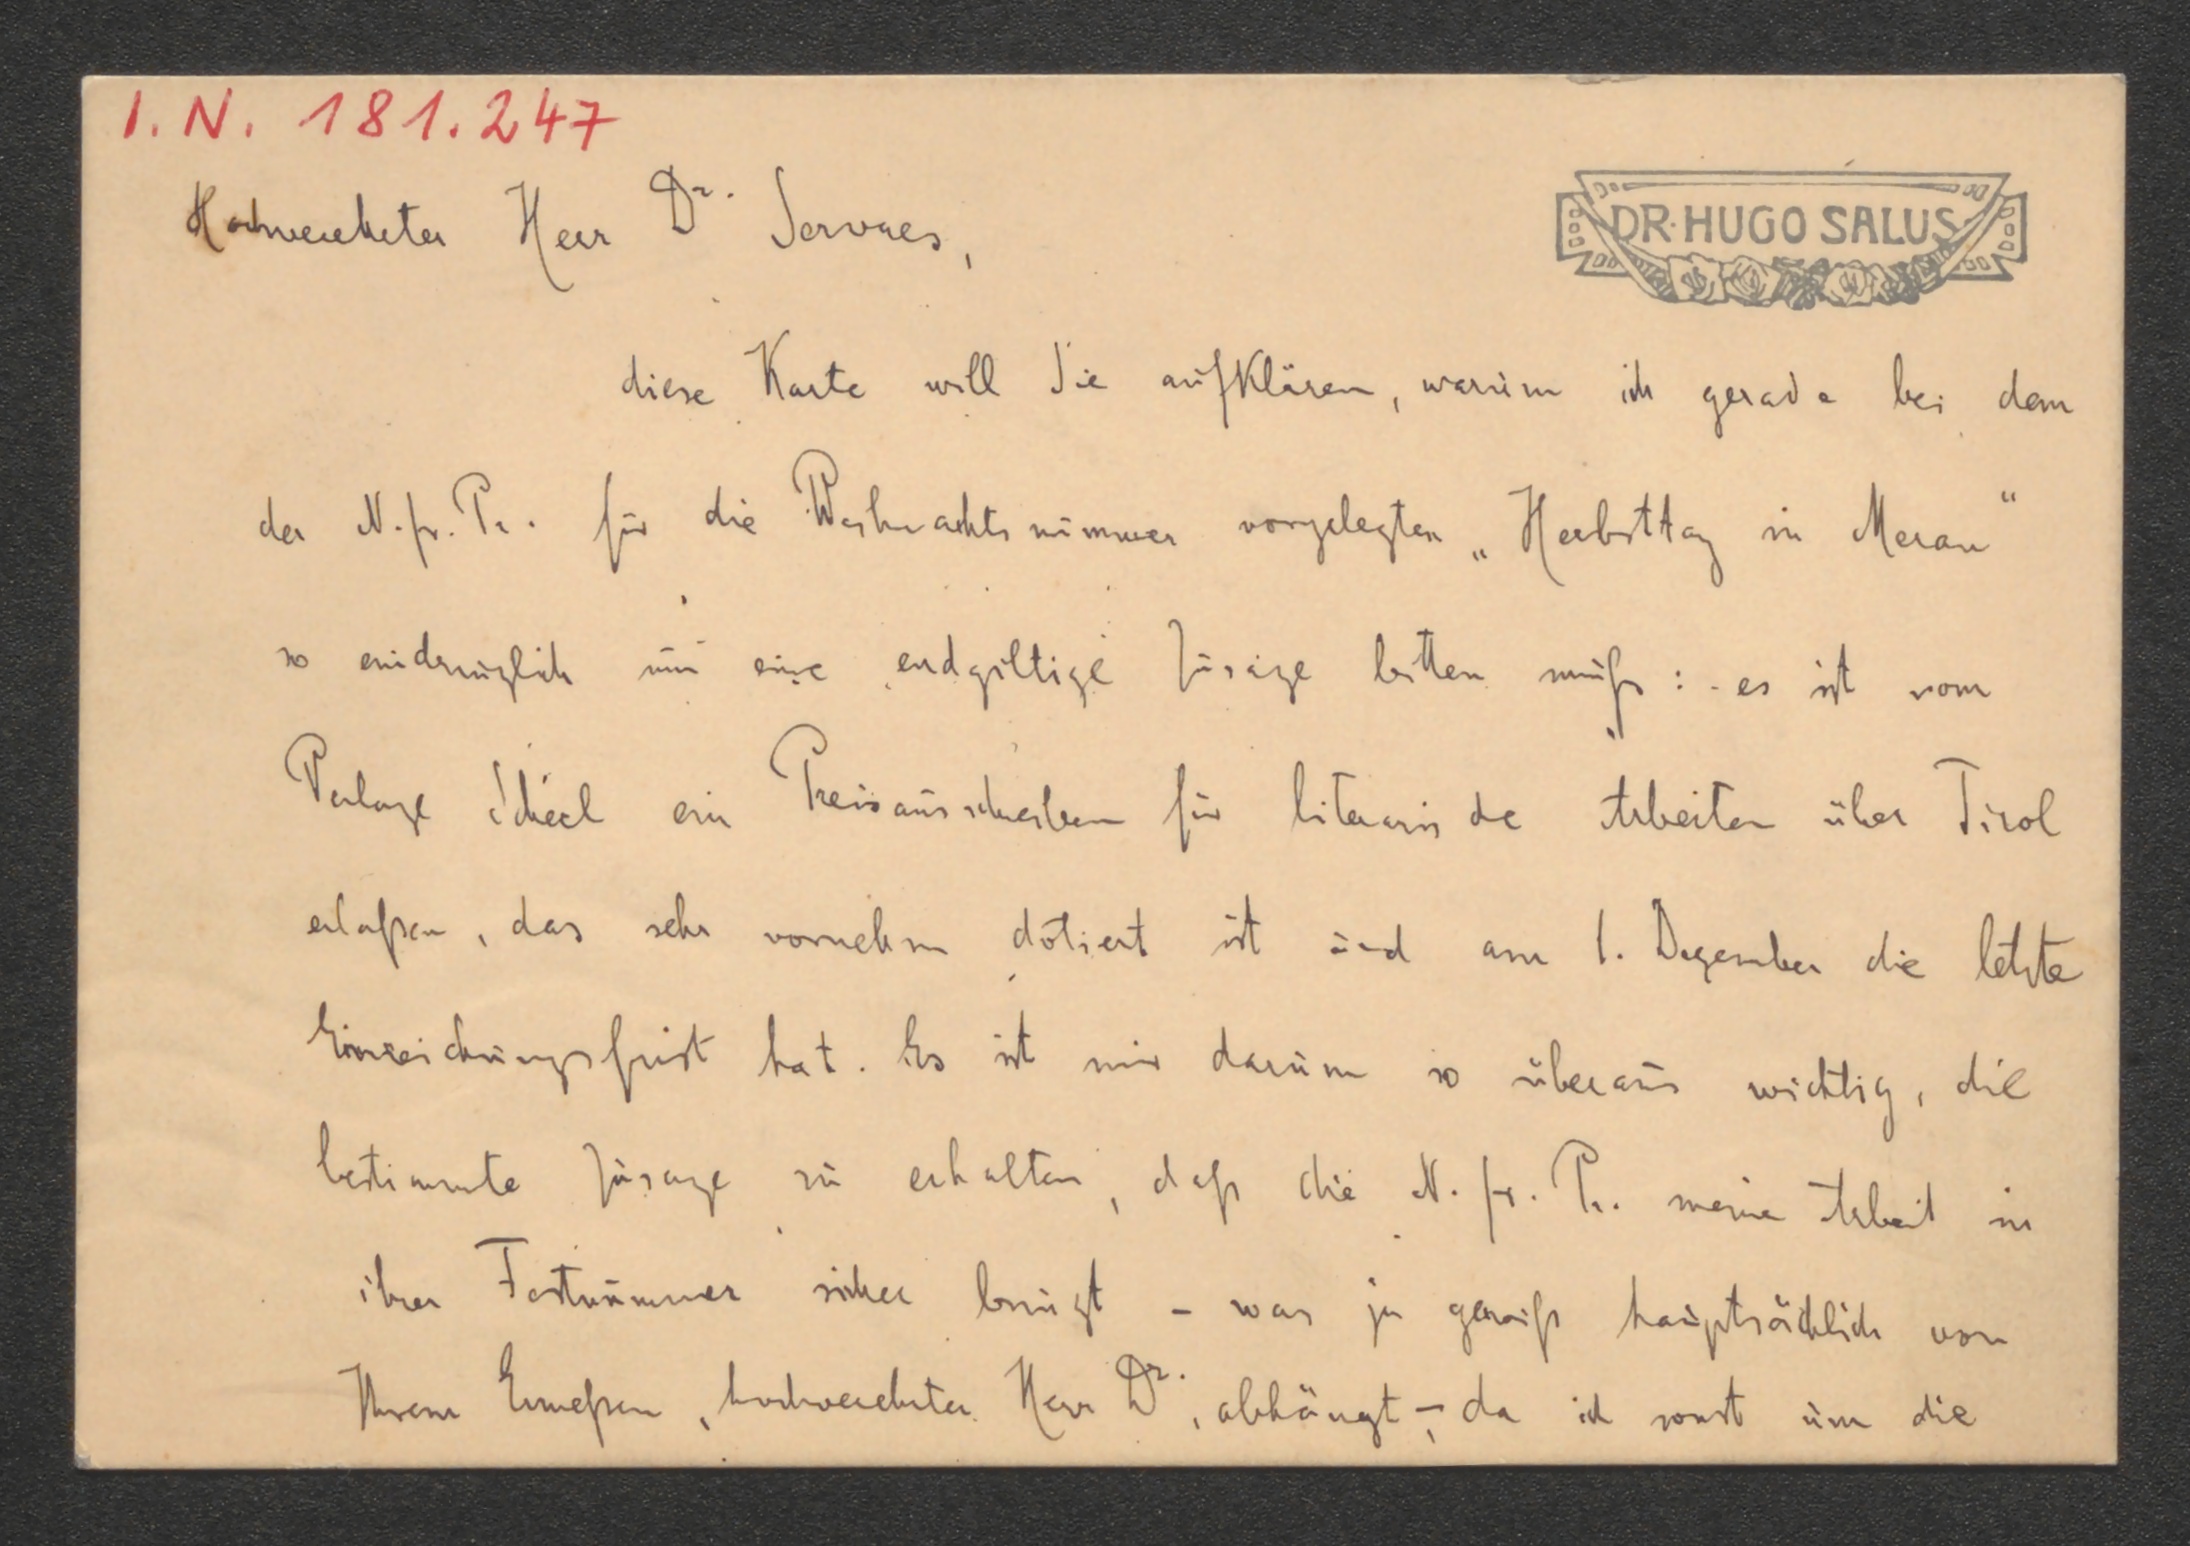 I. N. 181.247
DR. HUGO SALUS
Hochverehrter Herr Dr. Servaes,
diese Karte will Sie aufklären, warum ich gerade bei dem
der N. fr. Pr. für die Weihnachtsnummer vorgelegten „Herbsttag in Meran“
so eindringlich um eine endgiltige Zusage bitten muß: es ist vom
Verlage ein Preisausschreiben für literarische Arbeiten über Tirol
erlaßen, das sehr vornehm dotiert ist und am 1. Dezember die letzte
Einreichungsfrist hat. Es ist mir darum so überaus wichtig, die
bestimmte Zusage zu erhalten, daß die N. fr. Pr. meine Arbeit in
ihrer Festnummer sicher bringt – was ja gewiß hauptsächlich von
Ihrem Ermeßen, hochverehrter Herr Dr., abhängt –, da ich sonst um die